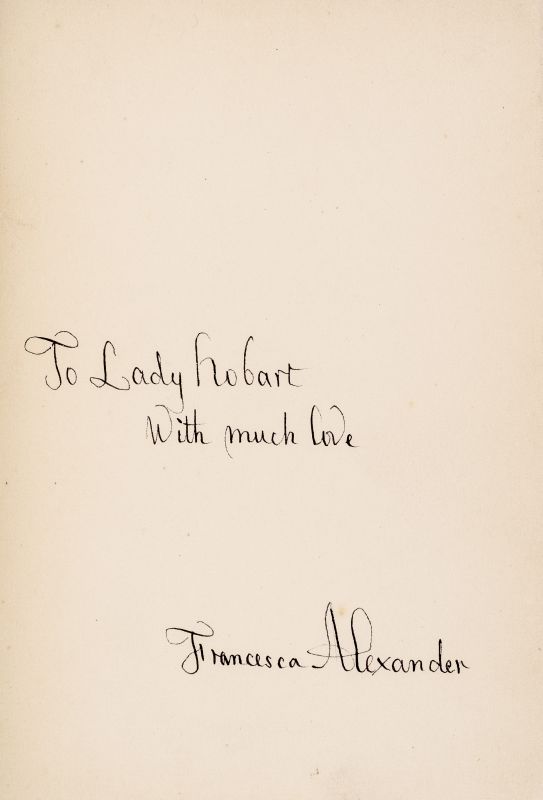 To Lady Hobart
With much love
Francesca Alexander